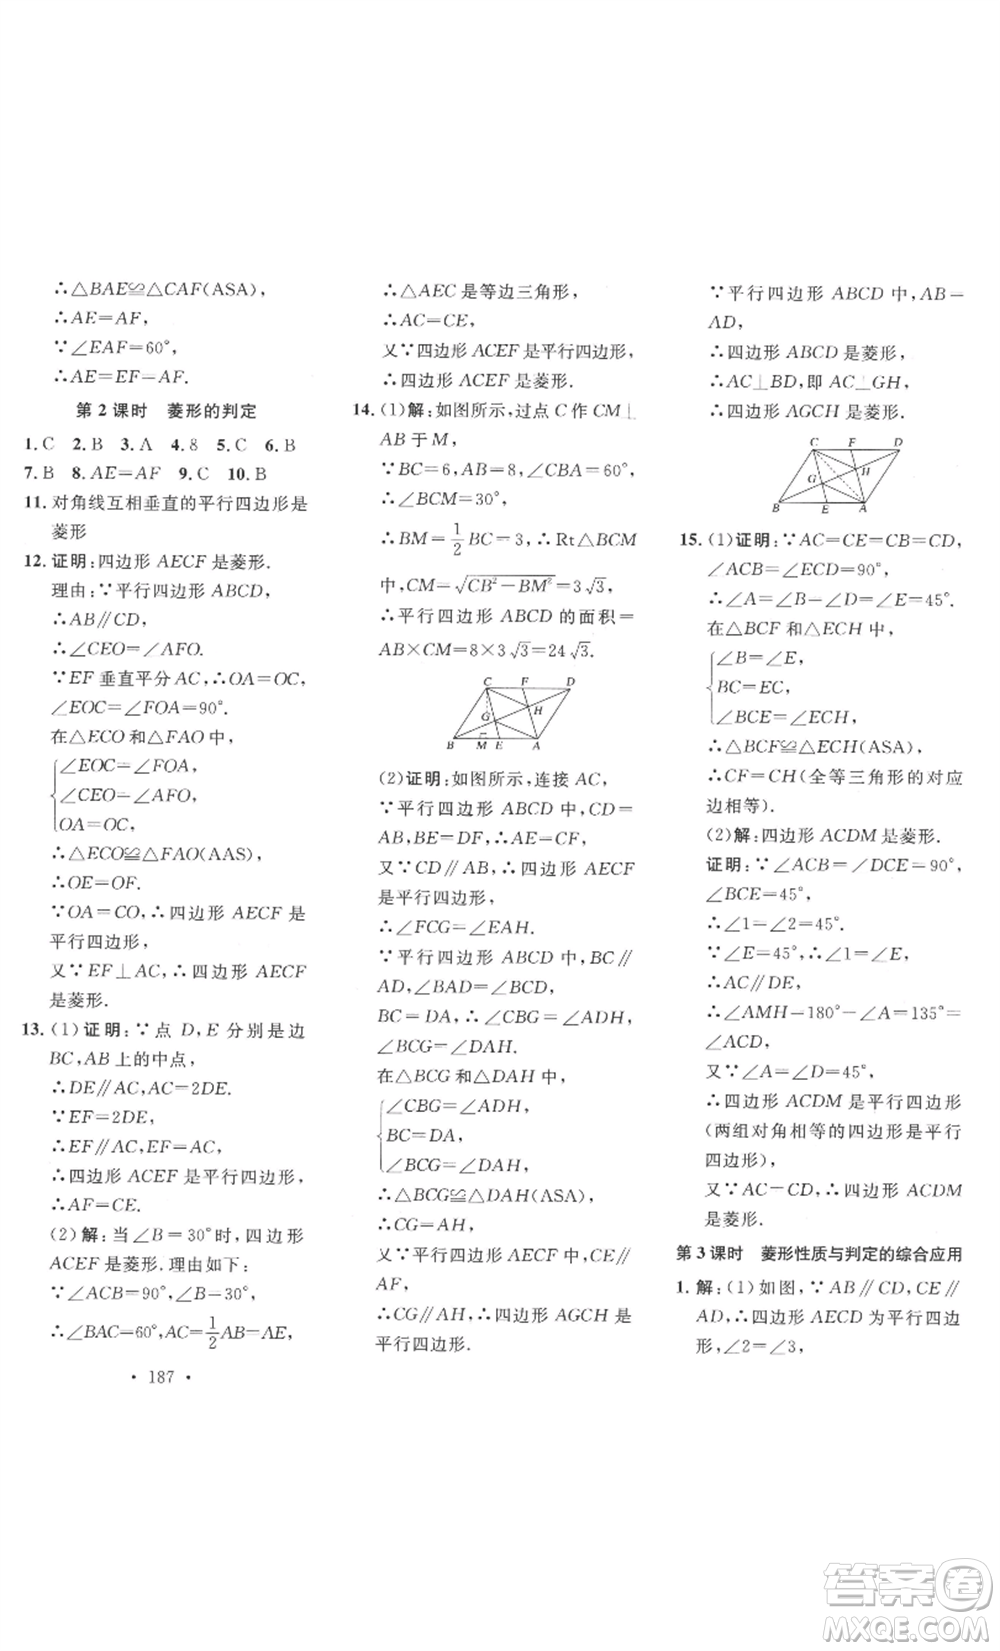 ∴△BAE≌△CAF(ASA),
∴AE=AF,
∵∠EAF=60°,
∴AE=EF=AF.
第 2 课时　菱形的判定
1.C 2.B 3.A 4.8 5.C 6.B
7.B 8.AE=AF 9.C 10.B
11.对角线互相垂直的平行四边形是
菱形
12.证明:四边形 AECF 是菱形.
理由:∵平行四边形 ABCD,
∴AB∥CD,
∴∠CEO=∠AFO.
∵EF 垂直平分 AC,∴OA=OC,
∠EOC=∠FOA=90°.
在△ECO 和△FAO 中,
∠EOC=∠FOA,
∠CEO=∠AFO,
OA=OC,
∴△ECO≌△FAO(AAS)
∴OE=OF.
∵OA=CO,∴四边形 AECF 是
平行四边形,
又∵EF⊥AC,∴四边形 AECF
是菱形.
13.(1)证明:∵点 D,E 分别是边
BC,AB 上的中点,
∴DE∥AC,AC=2DE.
∵EF=2DE,
∴EF∥AC,EF=AC,
∴四边形 ACEF 是平行四边形,
∴AF=CE.
(2)解:当∠B=30°时,四边形
ACEF 是菱形.理由如下:
∵∠BCA=90°,∠B=30°,
∴∠BAC=60°,AC=1/2AB=AE,
• 187 •
∴△AEC 是等边三角形,
∴AC=CE,
又∵四边形 ACEF 是平行四边形,
∴四边形 ACEF 是菱形.
14.(1)解:如图所示,过点 C 作 CM⊥
AB 于 M,
∵BC=6,AB=8,∠CBA=60°,
∴∠BCM=30°,
∴BM=1/2BC=3,∴Rt△BCM
中,CM=√(CB²-BM²)=3√3,
∴平行四边形 ABCD 的面积=
AB×CM=8×3√3=24√3.
C F D
G H
B M E A
(2)证明:如图所示,连接 AC,
∵平行四边形 ABCD 中,CD=
AB,BE=DF,∴AE=CF,
又∵CD∥AB,∴四边形 AECF
是平行四边形,
∴∠FCG=∠EAH.
∵平行四边形 ABCD 中,BC∥
AD,∠BAD=∠BCD,
BC=DA,∴∠CBG=∠ADH,
∴∠BCG=∠DAH.
在△BCG 和△DAH 中,
∠CBG=∠ADH,
BC=DA,
∠BCG=∠DAH,
∴△BCG≌△DAH(ASA),
∴CG=AH,
又∵平行四边形 AECF 中,CE∥
AF,
∴CG∥AH,∴四边形 AGCH 是
平行四边形.
∵平行四边形 ABCD 中,AB=
AD,
∴四边形 ABCD 是菱形,
∴AC⊥BD,即 AC⊥GH,
∴四边形 AGCH 是菱形.
C F D
G H
B E A
15.(1)证明:∵AC=CE=CB=CD,
∠ACB=∠ECD=90°,
∴∠A=∠B=∠D=∠E=45°.
在△BCF 和△ECH 中,
∠B=∠E,
BC=EC,
∠BCE=∠ECH,
∴△BCF≌△ECH(ASA),
∴CF=CH(全等三角形的对应
边相等).
(2)解:四边形 ACDM 是菱形.
证明:∵∠ACB=∠DCE=90°,
∠BCE=45°,
∴∠1=∠2=45°.
∵∠E=45°,∴∠1=∠E,
∴AC∥DE,
∴∠AMH=180°-∠A=135°=
∠ACD,
又∵∠A=∠D=45°,
∴四边形 ACDM 是平行四边形
(两组对角相等的四边形是平行
四边形),
又∵AC=CD,∴四边形 ACDM
是菱形.
第 3 课时　菱形性质与判定的综合应用
1.解:(1)如图,∵AB∥CD,CE∥
AD,∴四边形 AECD 为平行四边
形,∠2=∠3,
答案卷
MXQE.COM